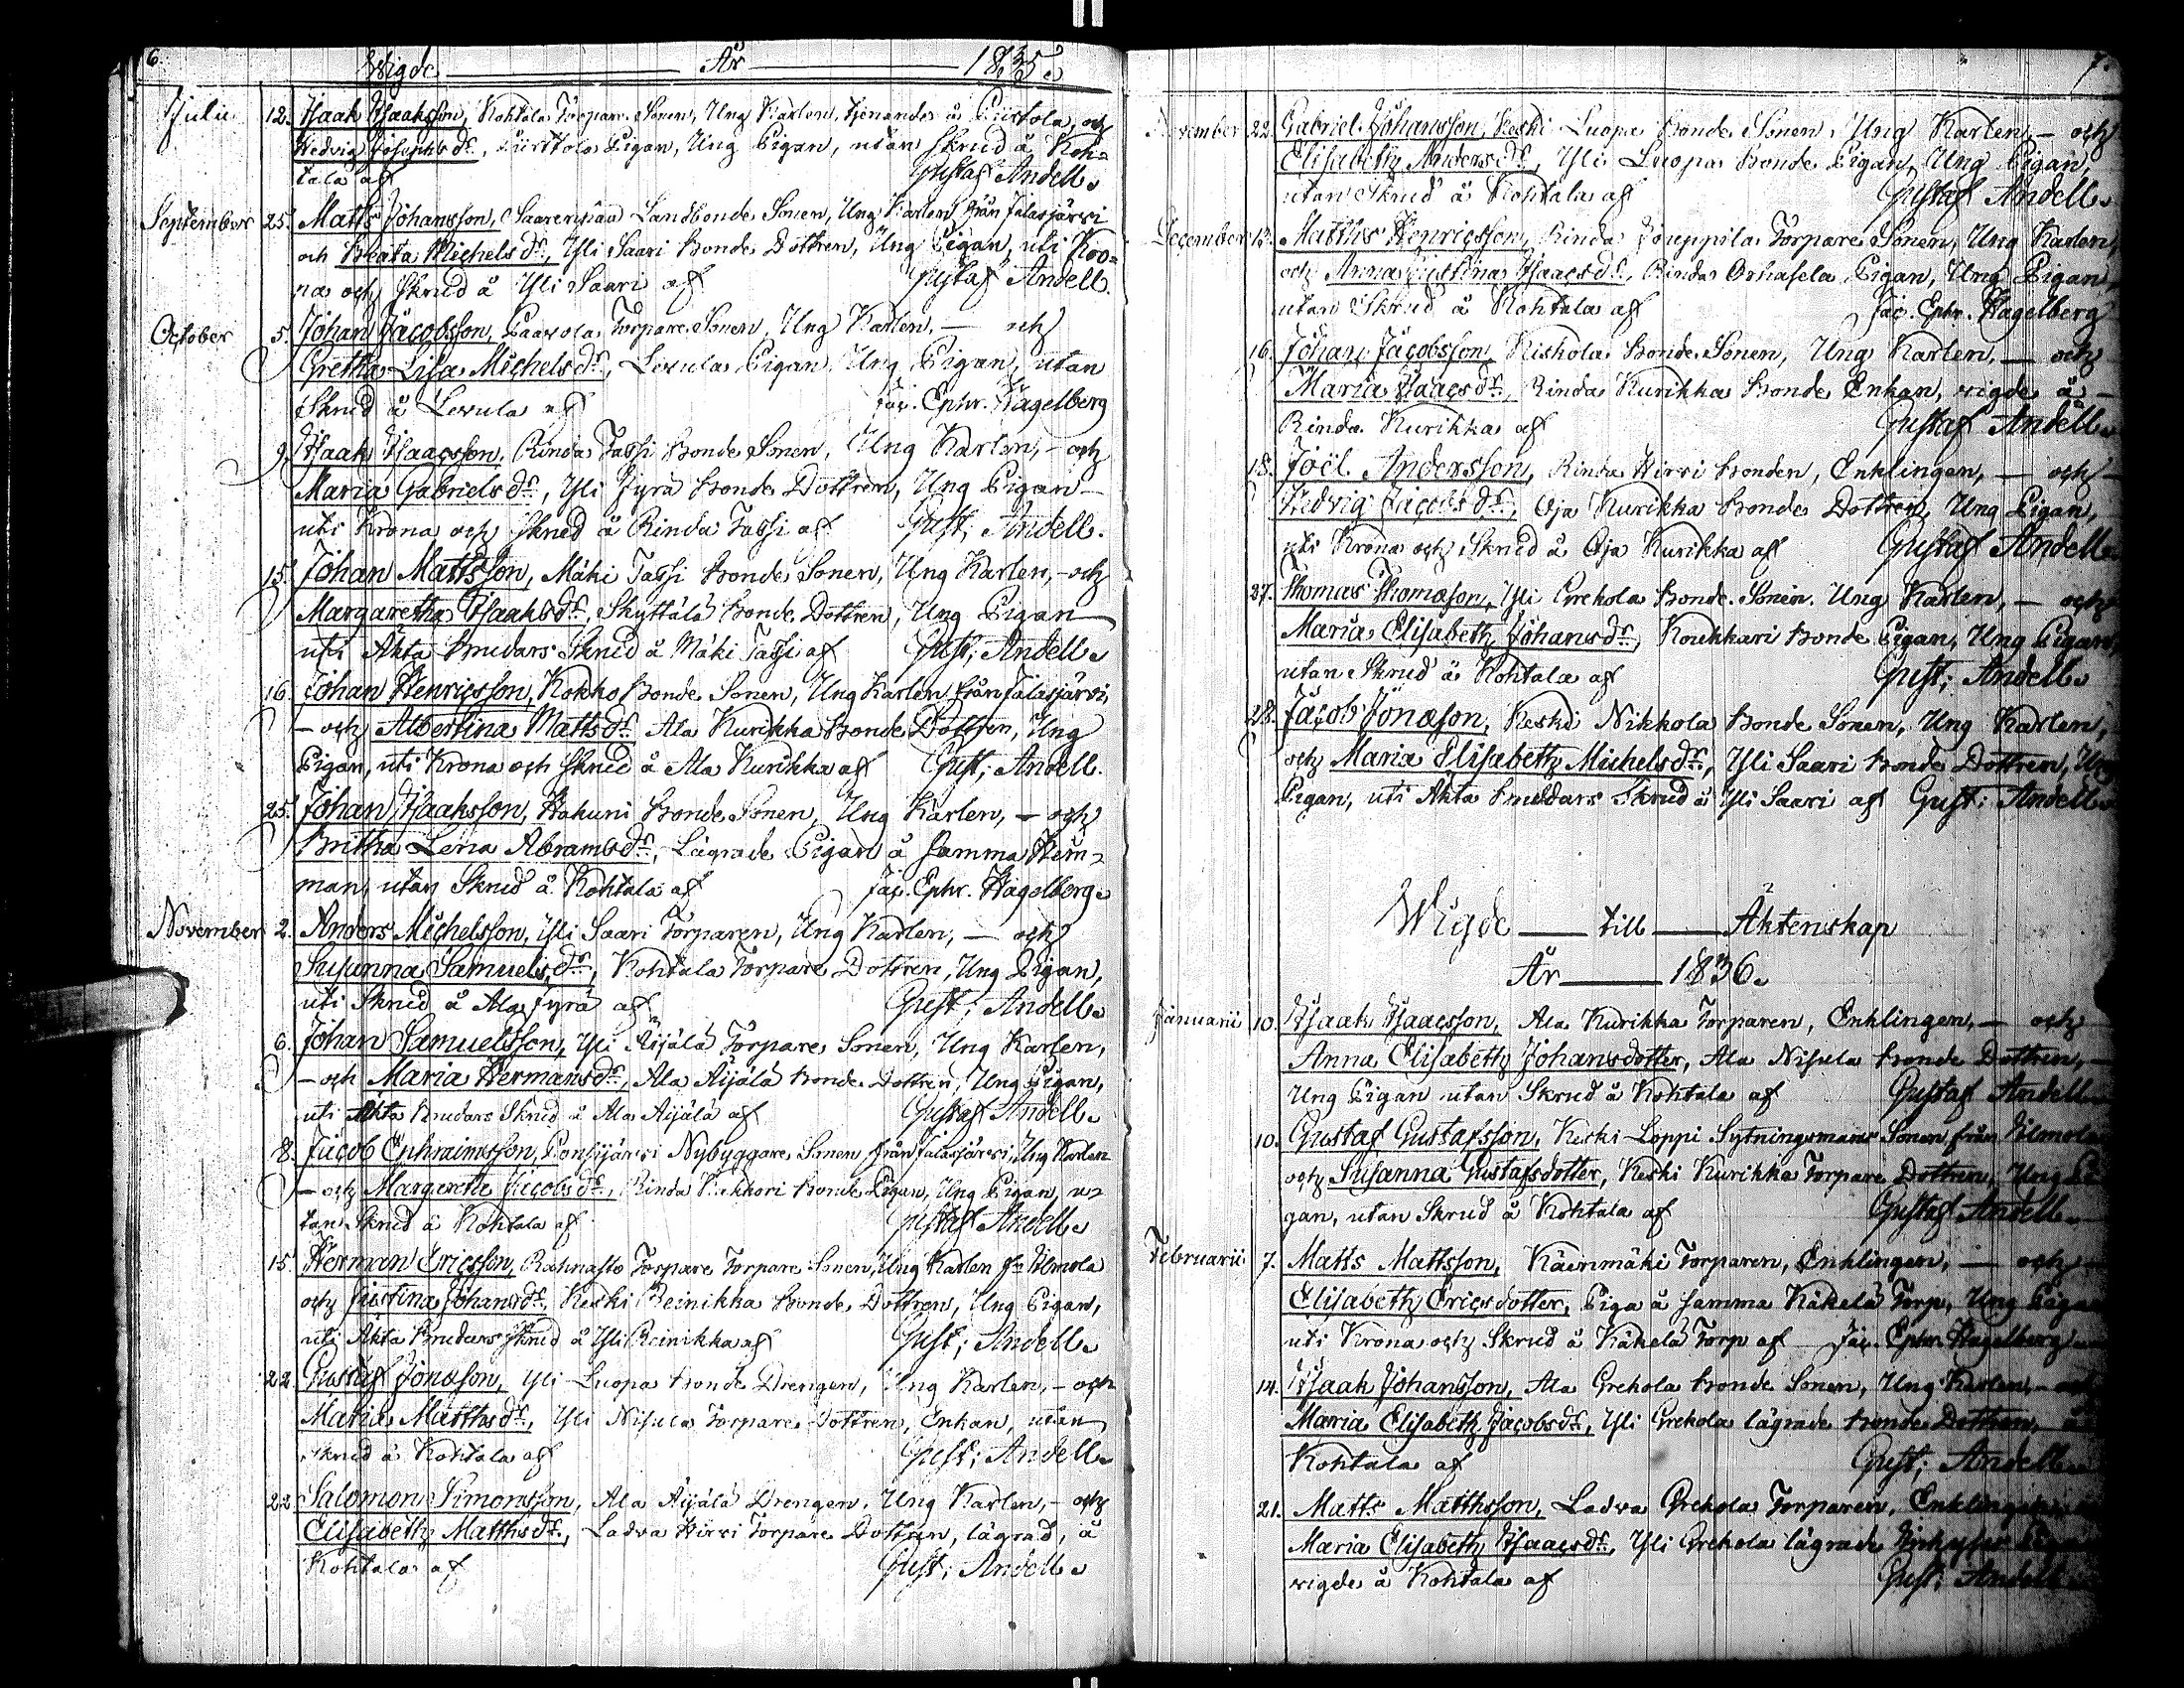 6.
Wigde — År — 1835.
Julii 12. Isaak Isaaksson, Kohtala Torpare Sonen, Ung Karlen, tjenandes å Piirtola, och
Hedvig Josephs dr., Piirtola Pigan, Ung Pigan, utan Skrud å Koh=
tala af Gustaf Andell.
September 25. Matts Johansson, Saarenpää Landbonde Sonen, Ung Karlen från Jalasjärvi
och Beata Michels dr., Yli Saari Bonde Dottren, Ung Pigan, uti Kro=
na och Skrud å Yli Saari af Gustaf Andell.
October 5. Johan Jacobsson, Paavola Torpare Sonen, Ung Karlen, — och
Gretha Lisa Michels dr., Levula Pigan, Ung Pigan, utan
Skrud å Levula af Jac. Ephr. Hagelberg
9. Isaak Isaacsson, Rinda Tassi Bonde Sonen, Ung Karlen, – och
Maria Gabriels dr., Yli Jyrä Bonde Dottren, Ung Pigan –
uti Krona och Skrud å Rinda Tassi af Gust; Andell.
15. Johan Mattsson, Mäki Tassi Bonde Sonen, Ung Karlen, – och
Margaretha Isaaks dr., Skyttälä Bonde Dottren, Ung Pigan
uti Äkta Brudars Skrud å Mäki Tassi af Gust; Andell.
16. Johan Henricsson, Kokko Bonde Sonen, Ung Karlen från Jalasjärvi,
– och Albertina Matts dr. Ala Kurikka Bonde Dottren, Ung
Pigan, uti Krona och Skrud å Ala Kurikka af Gust; Andell.
25. Johan Isaaksson, Hakuni Bonde Sonen, Ung Karlen, – och
Britha Lena Abrams dr., Lägrade Pigan å Samma Hem=
man, utan Skrud å Kohtala af Jac. Ephr. Hagelberg.
November 2. Anders Michelsson, Yli Saari Torparen, Ung Karlen, — och
Susanna Samuels dr., Kohtala Torpare Dottren, Ung Pigan,
uti Skrud å Ala Jyrä af Gust; Andell.
6. Johan Samuelsson, Yli Äijälä Torpare Sonen, Ung Karlen,
– och Maria Hermans dr., Ala Äijälä Bonde Dottren, Ung Pigan,
uti Äkta Brudars Skrud å Ala Äijälä af Gustaf Andell.
8. Jacob Enhraimsson, Nybyggare Sonen från Jalasjärvi, Ung Karlen
– och Margaretha Jacobs dr., Rinda Bonde Pigan, Ung Pigan, u=
tan Skrud å Kohtala af Gustaf Andell.
15. Herman Ericsson, Rahnasto Torpare Torpare Sonen, Ung Karlen fr. Ilmola
och Justina Johans dr. Keski Reinikka Bonde Dottren, Ung Pigan,
uti Äkta Brudars Skrud å Yli Reinikka af Gust; Andell.
22. Gustaf Jonasson, Yli Luopa Bonde Drengen, Ung Karlen, – och
Maria Matths dr., Yli Nisula Torpare Dottren, Enkan, utan
Skrud å Kohtala af Gust; Andell.
22 Salomon Simonsson, Ala Äijälä Drengen, Ung Karlen, – och
Elisabeth Matths dr., Ladva Hirvi Torpare Dottren, lägrad, å
Kohtala af Gust; Andell.
7.
November 22. Gabriel Johansson, Keski Luopa Bonde Sonen, Ung Karlen, – och
Elisabeth Anders dr., Yli Luopa Bonde Pigan, Ung Pigan,
utan Skrud å Kohtala af Gustaf Andell.
December 13. Matths Henricsson, Rinda Jouppila Torpare Sonen, Ung Karlen,
och Anna Justina Isaacs dr., Rinda Pigan, Ung Pigan,
utan Skrud å Kohtala af Jac. Ephr. Hagelberg
16. Johan Jacobsson, Kiskola Bonde Sonen, Ung Karlen, — och
Maria Isaacs dr., Rinda Kurikka Bonde Enkan, vigde å –
Rinda Kurikka af Gustaf Andell.
18. Joël Andersson, Rinda Hirvi Bonden, Enklingen, — och –
Hedvig Jacobs dr., Oja Kurikka Bonde Dottren, Ung Pigan,
uti Krona och Skrud å Oja Kurikka af Gustaf Andell
27. Thomas Thomasson, Yli Grekola Bonde Sonen, Ung Karlen, — och
Maria Elisabeth Johans dr., Koukkari Bonde Pigan, Ung Pigan,
utan Skrud å Kohtala af Gust; Andell.
28. Jacob Jonasson, Keski Nikkola Bonde Sonen, Ung Karlen,
och Maria Elisabeth Michels dr., Yli Saari Bonde Dottren, Ung
Pigan, uti Äkta Brudars Skrud å Yli Saari af Gust; Andell.
Wigde — till — Äktenskap
År — 1836.
Januarii 10. Isaak Isaacsson, Ala Kurikka Torparen, Enklingen, — och
Anna Elisabeth Johansdotter, Ala Nisula Bonde Dottren,
Ung Pigan utan Skrud å Kohtala af Gustaf Andell
10. Gustaf Gustafsson, Keski Loppi Sytningsmans Sonen från Ilmola
och Susanna Gustafsdotter, Keski Kurikka Torpare Dottren, Ung Pi
gan, utan Skrud å Kohtala af Gustaf Andell.
Februarii 7. Matts Mattsson, Käenmäki Torparen, Enklingen, — och
Elisabeth Ericsdotter, Piga å Samma Käkelä Torp, Ung Pigan
uti Krona och Skrud å Käkelä Torp af Jac. Ephr. Hagelberg
14. Isaak Johansson, Ala Grekola Bonde Sonen, Ung Karlen, – och
Maria Elisabeth Jacobs dr., Yli Grekola lägrade Bonde Dottren, å
Kohtala af Gust; Andell
21. Matts Matthsson, Ladva Grekola Torparen, Enklingen
Maria Elisabeth Isaacs dr., Yli Grekola lägrade
vigde å Kohtala af Gust; Andell